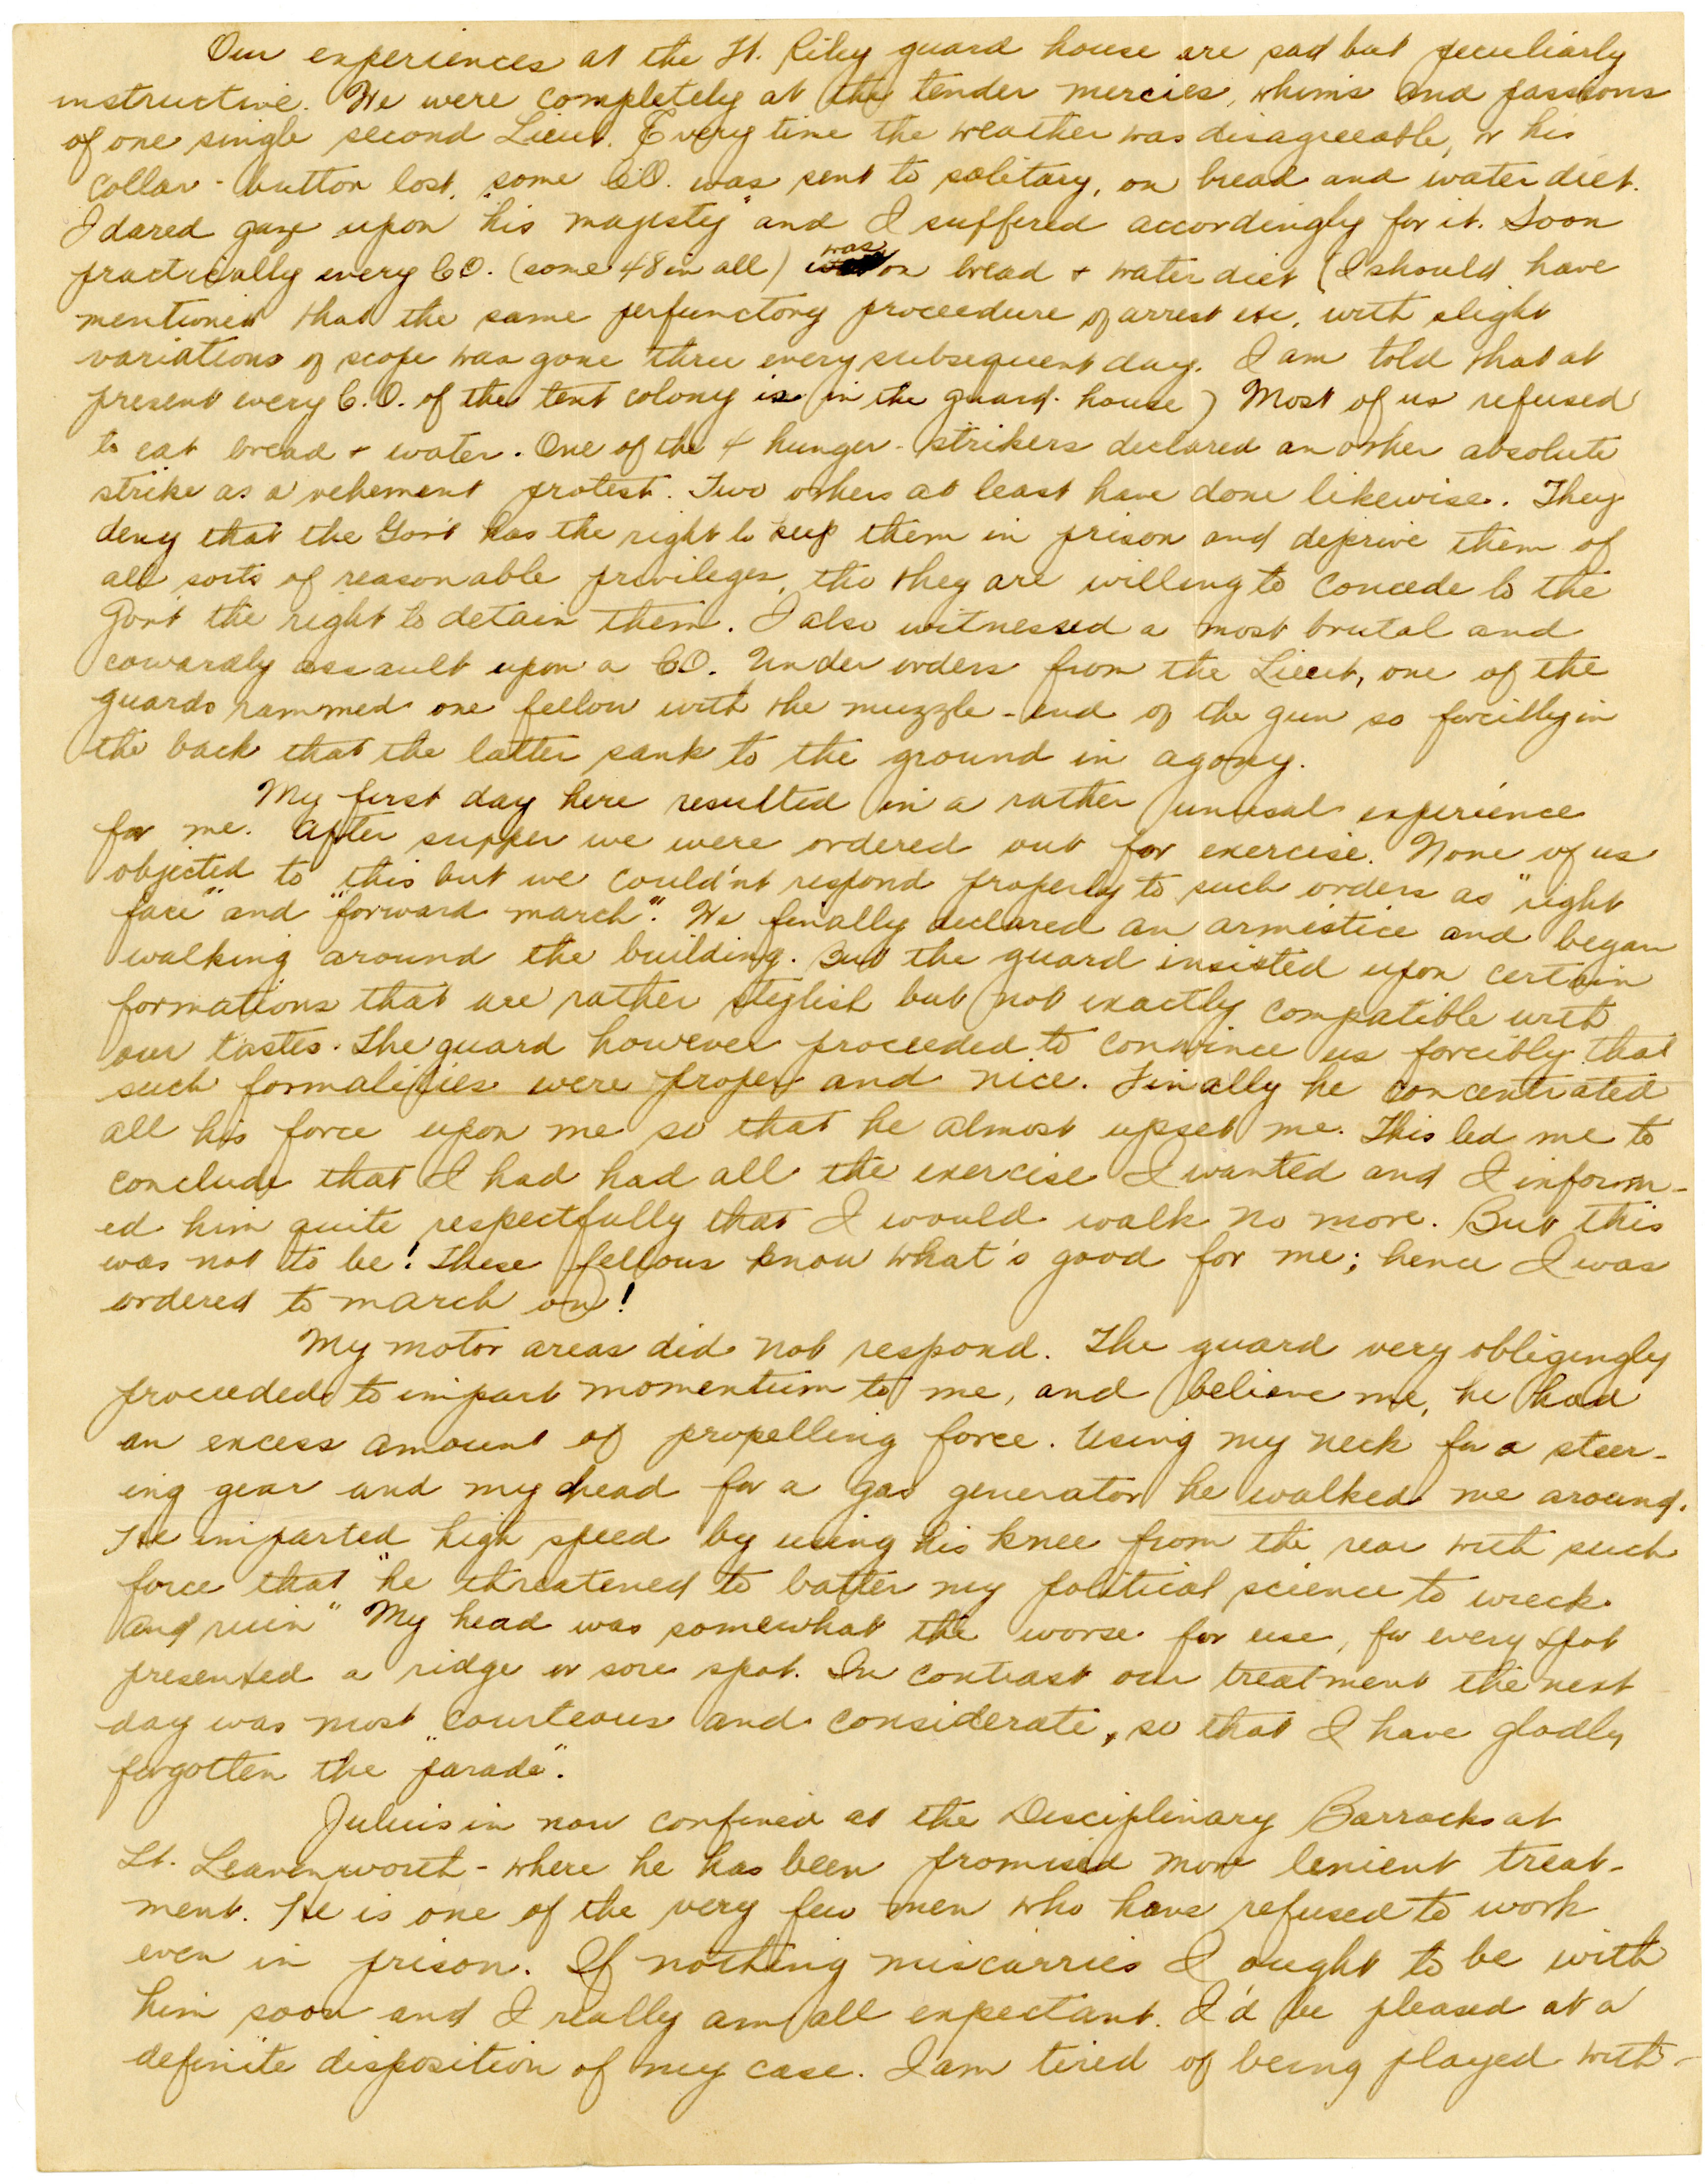 Our experiences at the Ft. Riley guard house are sad but peculiarly
instructive. We were completely at the tender mercies, whims and passions
of one single second Lieut. Every time the weather was disagreeable, or his
collar-button lost, some CO. was sent to solitary, on bread and water diet.
I dared gaze upon "his majesty" and I suffered accordingly for it. Soon
practically every CO. (some 48 in all) was on bread + water diet (I should have
mentioned that the same perfunctory proceedure of arrest etc, with slight
variations of scope was gone thru every subsequent day. I am told that at
present every C.O. of the tent colony is in the guard-house) Most of us refused
to eat bread + water. One of the 4 hunger-strikers declared another absolute
strike as a vehement protest. Two others at least have done likewise. They
deny that the Gov't has the right to keep them in prison and deprive them of
all sorts of reasonable privileges, tho they are willing to concede to the
Gov't the right to detain them. I also witnessed a most brutal and
cowardly assault upon a CO. Under orders from the Lieut, one of the
guards rammed one fellow with the muzzle-end of the gun so forcibly in
the back that the latter sank to the ground in agony.
My first day here resulted in a rather unusal experience
for me. After supper we were ordered out for exercise. None of us
objected to this but we could'nt respond properly to such orders as "right
face" and "forward march". We finally declared an armistice and began
walking around the building. But the guard insisted upon certain
formations that are rather stylish but not exactly compatible with
our tastes. The guard however proceeded to convince us forcibly that
such formalities were proper and nice. Finally he concentrated
all his force upon me so that he almost upset me. This led me to
conclude that I had had all the exercise I wanted and I inform-
ed him quite respectfully that I would walk no more. But this
was not to be! These fellows know what's good for me; hence I was
ordered to march on!
My motor areas did not respond. The guard very obligingly
proceeded to impart momentum to me, and believe me, he had
an excess amount of propelling force. Using my neck for a steer-
ing gear and my head for a gas generator he walked me around.
He imparted high speed by using his knee from the rear with such
force that "he threatened to batter my political science to wreck
and ruin" My head was somewhat the worse for use, for every spot
presented a ridge or sore spot. In contrast our treatment the next
day was most courteous and considerate, so that I have gladly
forgotten the "parade".
Julius in now confined at the Disciplinary Barracks at
Ft. Leavenworth - where he has been promised more lenient treat-
ment. He is one of the very few men who have refused to work
even in prison. If nothing miscarries I ought to be with
him soon and I really am all expectant. I'd be pleased at a
definite disposition of my case. I am tired of being played with-